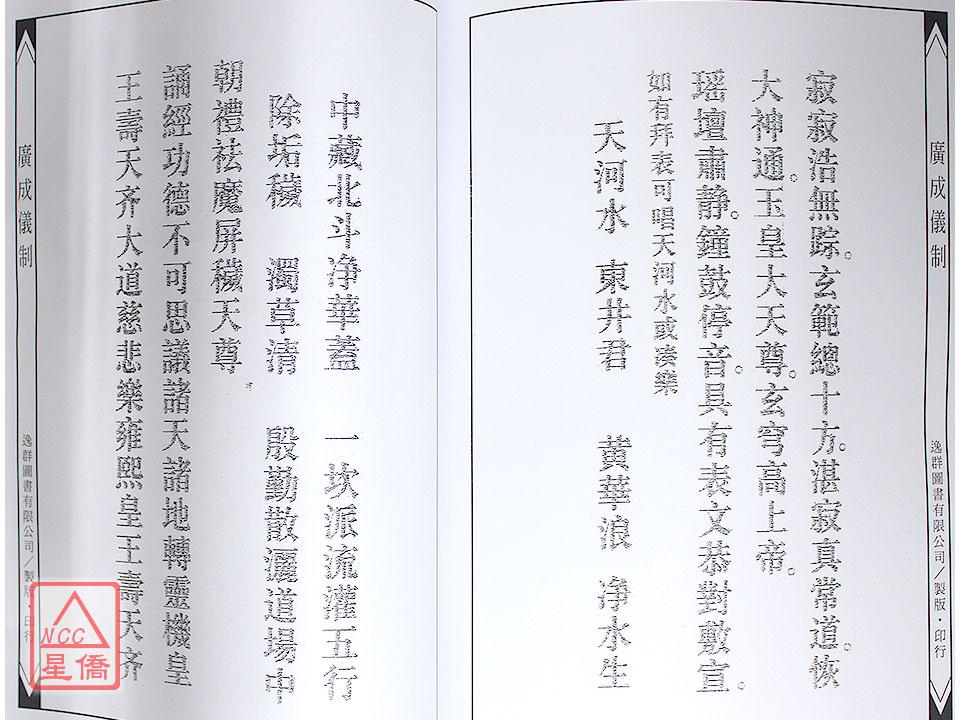 廣成儀制
逸群圖書有限公司／製版・印行
寂寂浩無踪。玄範總十方。湛寂真常道。恢
大神通。玉皇大天尊。玄穹高上帝。
瑶壇肅静。鐘鼓停音。具有表文恭對敷宣。
如有拜表可唱天河水或凑樂
天河水　東井君　黄華浪　净水生
中藏北斗净華蓋　一坎派流灌五行
除垢穢　濁草清　殷勤散灑道場中
朝禮袪魔屏穢天尊
誦經功德不可思議諸天諸地轉靈機皇
王壽天齐大道慈悲樂雍熙皇王壽天齐
廣成儀制
逸群圖書有限公司／製版・印行
NCC
星僑